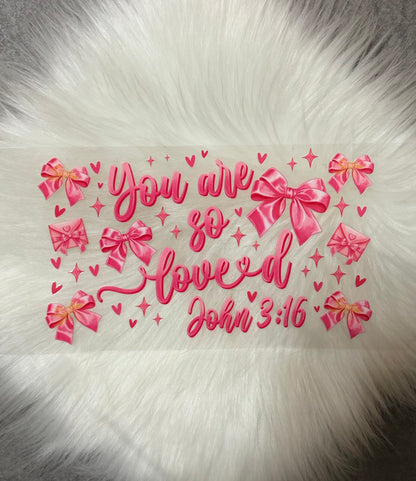 You are
so
loved
John 3:16